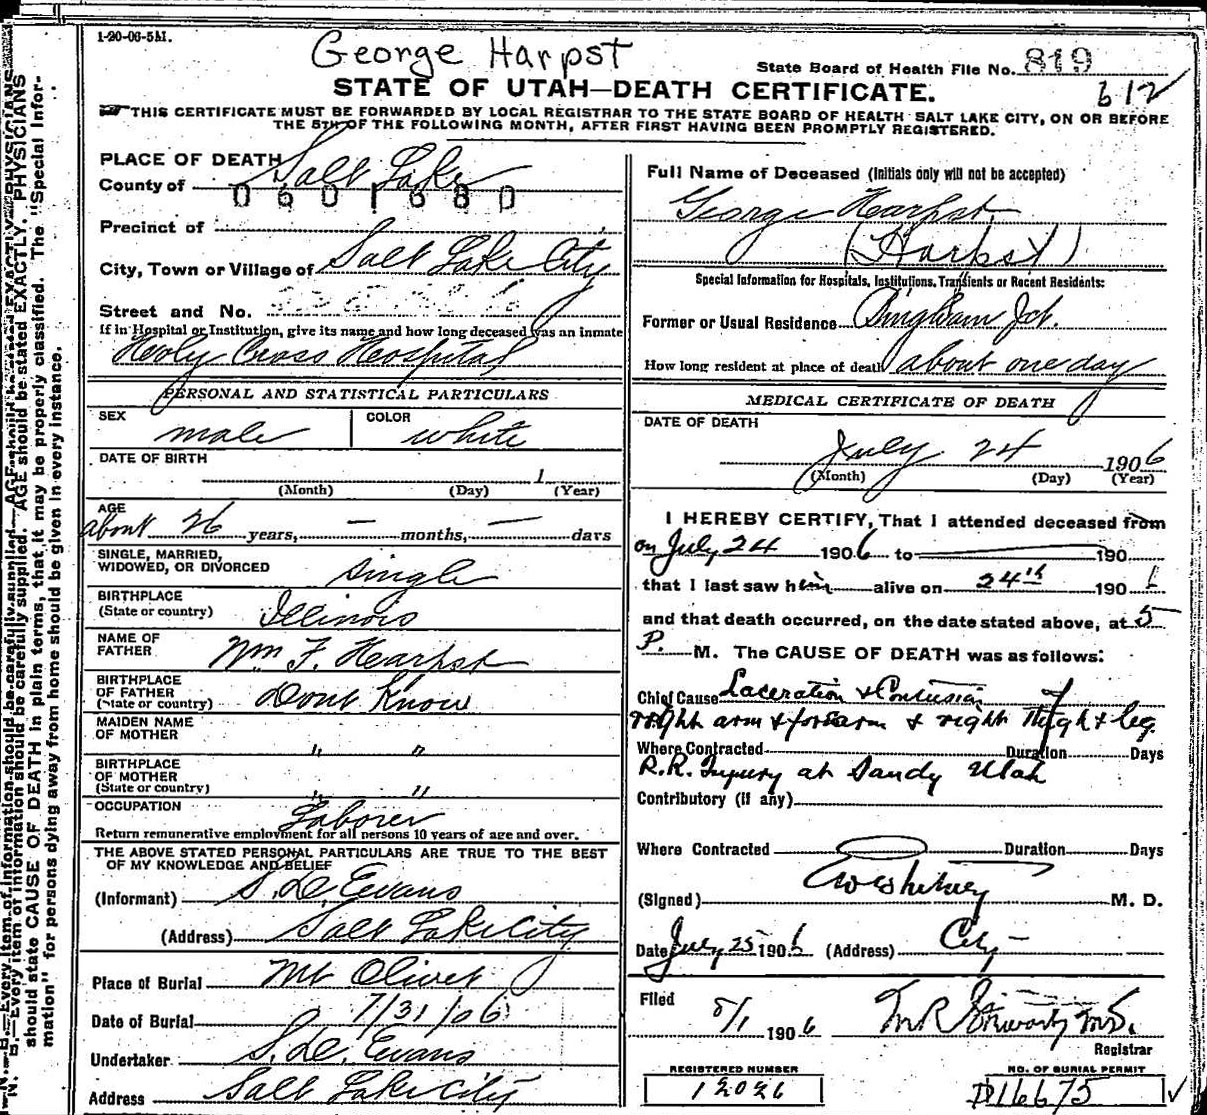 1-20-06-5M.
George Harpst
State Board of Health File No. 819
612
STATE OF UTAH—DEATH CERTIFICATE.
THIS CERTIFICATE MUST BE FORWARDED BY LOCAL REGISTRAR TO THE STATE BOARD OF HEALTH SALT LAKE CITY, ON OR BEFORE
THE 5TH OF THE FOLLOWING MONTH, AFTER FIRST HAVING BEEN PROMPTLY REGISTERED.
PLACE OF DEATH
County of Salt Lake
0601680
Precinct of
City, Town or Village of Salt Lake City
Street and No.
If in Hospital or Institution, give its name and how long deceased was an inmate
Holy Cross Hospital
PERSONAL AND STATISTICAL PARTICULARS
SEX male COLOR white
DATE OF BIRTH
1
(Month) (Day) (Year)
AGE
about 26 years, — months, — days
SINGLE, MARRIED,
WIDOWED, OR DIVORCED single
BIRTHPLACE
(State or country) Illinois
NAME OF
FATHER Wm F. Hearpst
BIRTHPLACE
OF FATHER
(State or country) Dont Know
MAIDEN NAME
OF MOTHER " "
BIRTHPLACE
OF MOTHER
(State or country) " "
OCCUPATION Laborer
Return remunerative employment for all persons 10 years of age and over.
THE ABOVE STATED PERSONAL PARTICULARS ARE TRUE TO THE BEST
OF MY KNOWLEDGE AND BELIEF
(Informant) S. D. Evans
(Address) Salt Lake City
Place of Burial Mt Olivet
Date of Burial 7/31/06
Undertaker S. D. Evans
Address Salt Lake City
Full Name of Deceased (Initials only will not be accepted)
George Hearpst
(Harpst)
Special Information for Hospitals, Institutions, Transients or Recent Residents:
Former or Usual Residence Bingham Jct.
How long resident at place of death about one day
MEDICAL CERTIFICATE OF DEATH
DATE OF DEATH
July 24 1906
(Month) (Day) (Year)
I HEREBY CERTIFY, That I attended deceased from
on July 24 1906 to 190
that I last saw him alive on 24th 190
and that death occurred, on the date stated above, at 5
P. M. The CAUSE OF DEATH was as follows:
Chief Cause Laceration & Contusion of
right arm & forearm & right thigh & leg.
Where Contracted Duration Days
R.R. Injury at Sandy Utah
Contributory (if any)
Where Contracted Duration Days
(Signed) Whitney M. D.
Date July 25 1906 (Address) City
Filed 8/1 1906 M.D.
Registrar
REGISTERED NUMBER
12026
NO. OF BURIAL PERMIT
D16675
N. B.—Every item of information should be carefully supplied. AGE should be stated EXACTLY. PHYSICIANS
should state CAUSE OF DEATH in plain terms, that it may be properly classified. The "Special Infor-
mation" for persons dying away from home should be given in every instance.